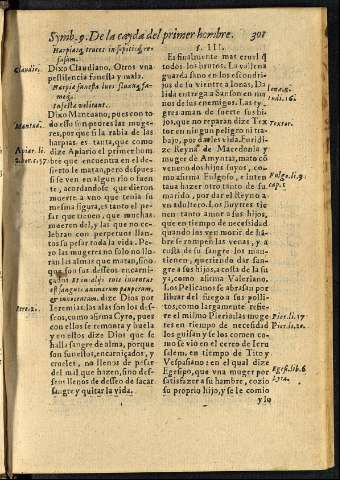 Symb. 9. De la cayda del primer hombre. 301
Harpiasq, truces insopitiq, re
fusam.
Claudiã.
Dixo Claudiano, Otros vna
pestilencia funesta y mala.
Harpia funesta lues
infesta volitant.
Mantuã.
Dixo Mantuano, pues con to
do esso son peores las muge
res, por que si la rabia de las
harpias es tanta, que como
Apiar. li.
dize Apiario el primer hom
bre que encuentra en el de-
sierto le matan, pero despues
si se ven en algun rio o fuen
te, acordandose que dieron
muerte a vno que tenia su
mesma figura, es tanto el pe-
sar que tienen, que muchas
mueren del, y las que no ce-
lebran con perpetuo llan-
to su pesar toda la vida. Pe-
ro las mugeres no solo no llo-
ran las almas que matan, sino
que son sus desseos encarni-
çados Et in alis tuis inuentus
est sanguis animarum pauperum,
& innocentum. dize Dios por
Iere. 2.
Ieremias: las alas son los des-
seos, como afirma Cyro, pues
con ellos se remonta y buela
y en ellos dize Dios que se
halla sangre de alma, porque
son sus ellos, encarniçados, y
crueles, no llenos de pesar
del mal que hazen, sino des-
seos llenos de desseo de sacar
sangre y quitar la vida.
§. III.
Es finalmente mas cruel q̃
todos los brutos. La vallena
guarda sano en los escondri-
jos de su vientre a Ionas, Da
lida entrega a Sanson en ma
nos de sus enemigos. Las ty
gres aman de suerte sus hi-
jos, que no reparan dize Tex
Textor.
tor en ningun peligro ni tra-
bajo, por darles vida. Euridi-
ce Reyna de Macedonia y
muger de Amyntas, mato cõ
veneno dos hijos suyos, co-
mo afirma Fulgoso, e inten
Fulgo. li. 9.
cap. 1
taua hazer otro tanto de su
marido, por dar el Reyno a
vn adultero. Los buytres tie
nen tanto amor a sus hijos,
que en tiempo de necessidad
quando los ven morir de hã-
bre se rompen las venas, y a
costa de su sangre los man-
tienen, queriendo dar san-
gre a sus hijos, a costa de la su
ya, como afirma Valeriano.
Los Pelicanos se abrasan por
librar del fuego a sus polli-
tos, como largamente refie-
re el mismo Pierio: las muge
Pier. li. 17
res en tiempo de necessidad
Pier. li. 20.
los guisan y se los comen co-
mo se vio en el cerco de Ieru
salem. en tiempo de Tito y
Vespasiano en el qual dize
Egesipo, que vna muger por
Egesi. lib. 6
satisfazer a su hambre, cozio
su proprio hijo, y se le comio